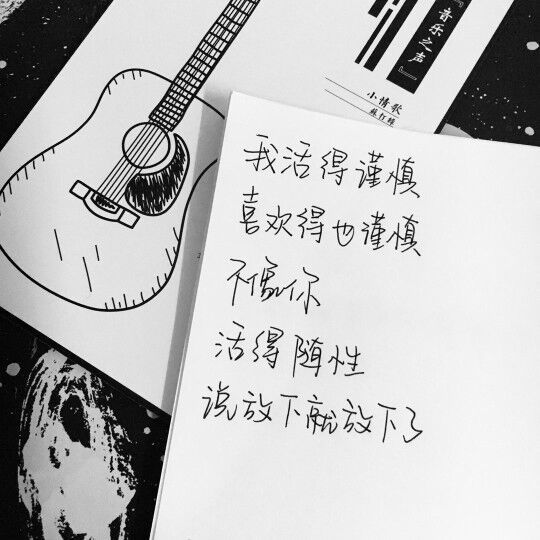 『音乐之声』
小情歌
苏打绿
我活得谨慎
喜欢得也谨慎
不像你
活得随性
说放下就放下了